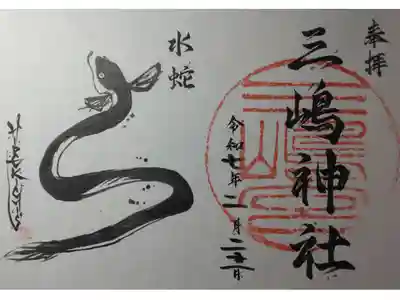 奉拝
三嶋神社
令和七年二月二五日
水蛇